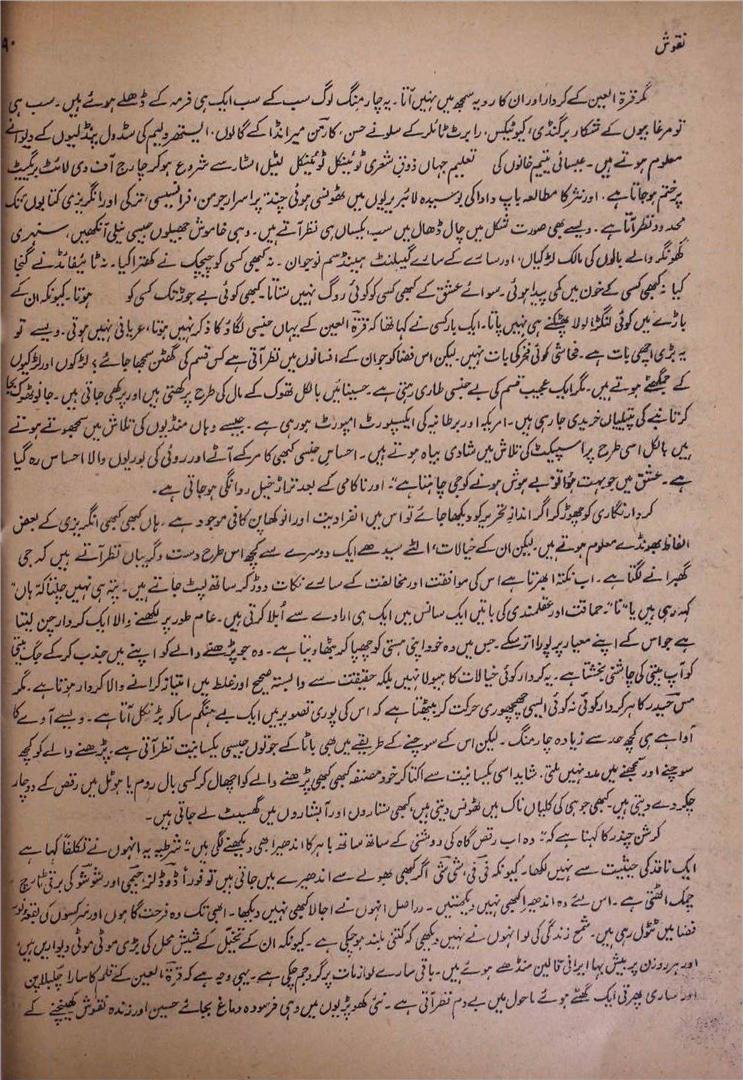 نقوش
۹۰
مگر قرۃ العین کے کردار اور ان کا رویہ سمجھ میں نہیں آتا۔ یہ چارمنگ لوگ سب کے سب ایک ہی فرمہ کے ڈھلے ہوئے ہیں۔ سب ہی
تو مرغابیوں کے شکار برگنڈی، کیوٹیکس، رابرٹ ٹائلر کے سلونے حسن، کارمن میرانڈا کے گالوں، ایستھر ولیم کی سڈول پنڈلیوں کے دیوانے
معلوم ہوتے ہیں۔ عیسائی یتیم خانوں کی تعلیم جہاں ذوقِ شعری ٹوئینکل ٹوئینکل لٹیل اسٹار سے شروع ہو کر چارج آف دی لائٹ بریگیٹ
پر ختم ہو جاتا ہے۔ اور نثر کا مطالعہ باپ دادا کی بوسیدہ لائبریریوں میں ٹھونسی ہوئی چند پراسرار جرمن، فرانسیسی، ترکی اور انگریزی کتابوں تک
محدود نظر آتا ہے۔ ویسے بھی صورت شکل میں چال ڈھال میں سب یکساں ہی نظر آتے ہیں۔ وہی خاموش جھیلوں جیسی نیلی آنکھیں، سنہری
گھونگر والے بالوں کی مالک لڑکیاں، اور سارے کے سارے گیلنٹ ہینڈسم نوجوان۔ نہ کبھی کسی کو چیچک نے کھترا کیا۔ نہ ٹائیفائڈ نے گنجا
کیا نہ کبھی کسی کے خون میں کمی پیدا ہوئی۔ سوائے عشق کے کبھی کسی کو کوئی روگ نہیں ستاتا۔ کبھی کوئی بے جوڑ تک کسی کو ہوتا۔ کیونکہ ان کے
باڑے میں کوئی لنگڑا لولا پھٹکنے ہی نہیں پاتا۔ ایک بار کسی نے کہا تھا کہ قرۃ العین کے یہاں جنسی لگاؤ کا ذکر نہیں ہوتا، عریانی نہیں ہوتی۔ ویسے تو
یہ بڑی اچھی بات ہے۔ فحاشی کوئی فخر کی بات نہیں۔ لیکن اس فضا کو جو ان کے افسانوں میں نظر آتی ہے کس قسم کی گھٹن سمجھا جائے؟ لڑکوں اور لڑکیوں
کے جمگھٹے ہوتے ہیں۔ مگر ایک عجیب قسم کی بے جنسی طاری رہتی ہے۔ حسینائیں بالکل تھوک کے مال کی طرح پرکھتی ہیں اور پرکھی جاتی ہیں۔ جانو ٹھوک بجا
کر تانبے کی پتیلیاں خریدی جا رہی ہیں۔ امریکہ اور برطانیہ کی ایکسپورٹ امپورٹ ہو رہی ہے۔ جیسے وہاں منڈیوں کی تلاش میں سمجھوتے ہوتے
ہیں بالکل اسی طرح پراسپیکٹ کی تلاش میں شادی بیاہ ہوتے ہیں۔ احساسِ جنسی کبھی کا مر کے آٹے اور روئی کی بوریوں والا احساس رہ گیا
ہے۔ عشق میں جو بہت ہوا تو "بے ہوش ہونے کو جی چاہتا ہے"۔ اور ناکامی کے بعد تراڑ خیل روانگی ہو جاتی ہے۔
کردار نگاری کو چھوڑ کر اگر اندازِ تحریر کو دیکھا جائے تو اس میں انفرادیت اور انوکھا پن کافی موجود ہے۔ ہاں کبھی کبھی انگریزی کے بعض
الفاظ بھونڈے معلوم ہوتے ہیں۔ لیکن ان کے خیالات، الٹے سیدھے ایک دوسرے سے کچھ اس طرح دست و گریباں نظر آتے ہیں کہ جی
گھبرانے لگتا ہے۔ اب نکتہ ابھرتا ہے اس کی موافقت اور مخالفت کے سارے نکات دوڑ کر ساتھ لپٹ جاتے ہیں۔ پتہ ہی نہیں چلتا کہ ہاں"
کہہ رہی ہیں یا "نا"۔ حماقت اور عقلمندی کی باتیں ایک سانس میں ایک ہی ارادے سے اُبلا کرتی ہیں۔ عام طور پر لکھنے والا ایک کردار چن لیتا
ہے جو اس کے اپنے معیار پر پورا اتر سکے۔ جس میں وہ خود اپنی ہستی کو چھپا کر بٹھا دیتا ہے۔ وہ جو پڑھنے والے کو اپنے میں جذب کر کے جگ بیتی
کو آپ بیتی کی چاشنی بخشتا ہے۔ یہ کردار کوئی خیالات کا ہیولا نہیں بلکہ حقیقت سے وابستہ صحیح اور غلط میں امتیاز کرانے والا کردار ہوتا ہے۔ مگر
مس حیدر کا ہر کردار کوئی نہ کوئی ایسی چھچھوری حرکت کر بیٹھتا ہے کہ اس کی پوری تصویر میں ایک بے ہنگم سا کوبڑ نکل آتا ہے۔ ویسے آوے کا
آوا ہے ہی کچھ حد سے زیادہ چارمنگ۔ لیکن اس کے سوچنے کے طریقے میں بھی باٹا کے جوتوں جیسی یکسانیت نظر آتی ہے، پڑھنے والے کو کچھ
سوچنے اور سمجھنے میں مدد نہیں ملتی۔ شاید اسی یکسانیت سے اکتا کر خود مصنفہ کبھی کبھی پڑھنے والے کو اچھال کر کسی بال روم یا ہوٹل میں رقص کے دو چار
چکر دے دیتی ہیں۔ کبھی جوہی کی کلیاں ناک میں ٹھونس دیتی ہیں، کبھی ستاروں اور آبشاروں میں گھسیٹ لے جاتی ہیں۔
کرشن چندر کا کہنا ہے کہ: "وہ اب رقص گاہ کی روشنی کے ساتھ ساتھ باہر کا اندھیرا بھی دیکھنے لگی ہیں": شرطیہ یہ انہوں نے تکلفاً کہا ہے
ایک ناقد کی حیثیت سے نہیں لکھا۔ کیونکہ فی فی، شی شی اگر کبھی بھولے سے اندھیرے میں جاتی ہیں تو فوراً ڈوڈلز، جیمی اور شوشو کی برقی ٹارچ
چمک اٹھتی ہے۔ اس لئے وہ اندھیرا کبھی نہیں دیکھتیں۔ دراصل انہوں نے اجالا کبھی نہیں دیکھا۔ ابھی تک وہ فرحت گاہوں اور نرگسوں کی بقعۂ نور
فضا میں ٹٹول رہی ہیں۔ شمعِ زندگی کی لو انہوں نے نہیں دیکھی کہ کتنی بلند ہو چکی ہے۔ کیونکہ ان کے تخیل کے شیش محل کی بڑی موٹی موٹی دیواریں ہیں،
اور ہر روزن پر بیش بہا ایرانی قالین منڈھے ہوئے ہیں۔ باقی سارے لوازمات پر گرد جم چکی ہے۔ یہی وجہ ہے کہ قرۃ العین کے قلم کا سارا چلبلا پن
اور ساری پھرتی ایک گھٹے ہوئے ماحول میں بے دم نظر آتی ہے۔ نئی کھوپڑیوں میں وہی فرسودہ دماغ بجائے حسین اور زندہ نقوش کھینچنے کے